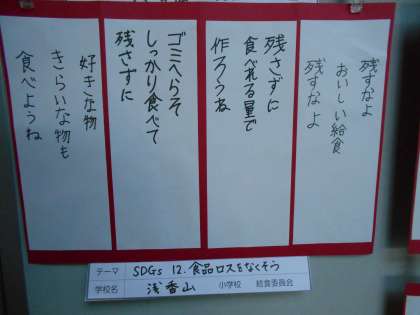 残すなよ
おいしい給食
残すなよ
残さずに
食べれる量で
作ろうね
ゴミへらそ
しっかり食べて
残さずに
好きな物
きらいな物も
食べようね
テーマ SDGs 12.食品ロスをなくそう
学校名 浅香山 小学校 給食委員会